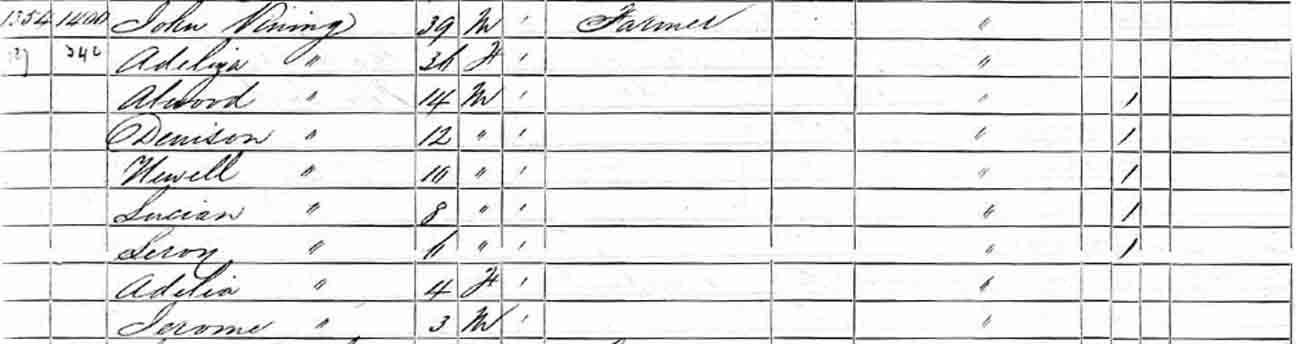 1354 1400 John Vining 39 M ' Farmer "
342 Adeliza " 36 F ' "
Atwood " 14 M ' " 1
Denison " 12 " ' " 1
Newell " 10 " ' " 1
Lucian " 8 " ' " 1
Leroy " 6 " ' " 1
Adelia " 4 F ' "
Jerome " 3 M ' "